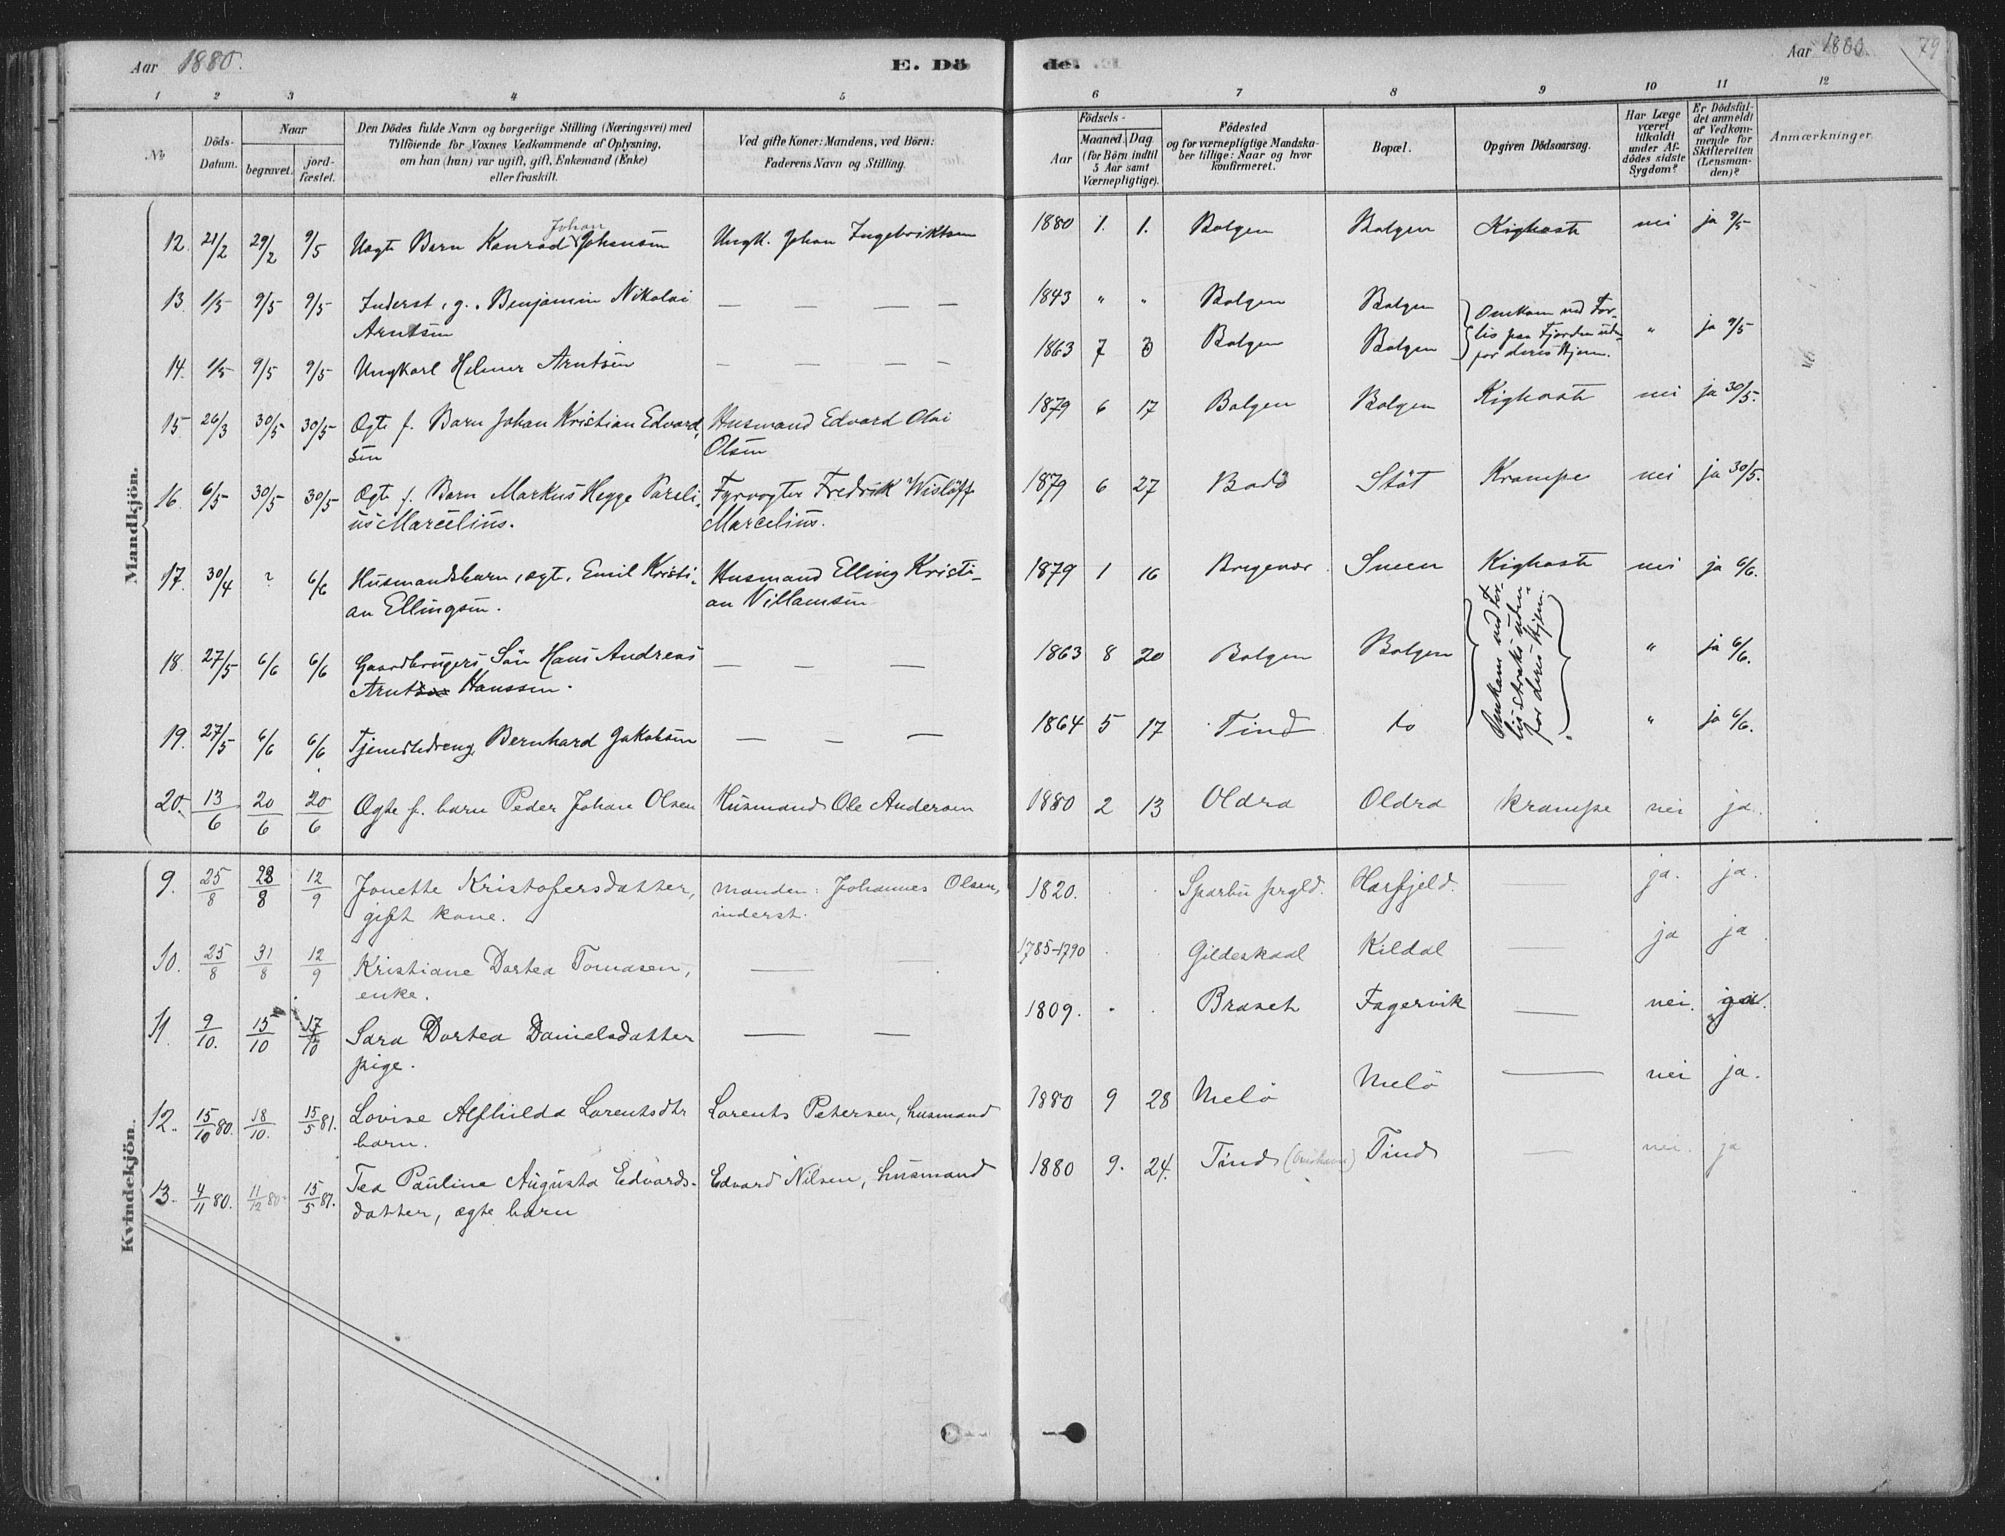 Aar 1880.
E. Dö
de.
Aar 1880.
79
1 2 3 4 5 6 7 8 9 10 11 12
No
Döds-Datum.
Naar
begravet.
jordfæstet.
Den Dödes fulde Navn og borgerlige Stilling (Næringsvei) med
Tilföiende for Voxnes Vedkommende af Oplysning,
om han (hun) var ugift, gift, Enkemand (Enke)
eller fraskilt.
Ved gifte Koner: Mandens, ved Börn:
Faderens Navn og Stilling.
Födsels-
Aar
Maaned. Dag
(for Börn indtil
5 Aar samt
Værnepligtige).
Födested
og for værnepligtige Mandska-
ber tillige: Naar og hvor
konfirmeret.
Bopæl.
Opgiven Dödsaarsag.
Har Læge
været
tilkaldt
under Af-
dödes sidste
Sygdom?
Er Dödsfal-
det anmeldt
af Vedkom-
mende for
Skifteretten
(Lensman-
den)?
Anmærkninger.
Mandkjön.
12. 21/2 29/2 9/5 Uægte Barn Konrad Johan Johansen Ungk. Johan Ingebriktsen 1880 1. 1. Bolgen Bolgen Kighoste nei ja 9/5
13. 1/5 9/5 9/5 Inderst, g. Benjamin Nikolai — — — — 1843 " " Bolgen Bolgen Omkom ved For-
Arntsen
lis paa Fjorden uden-
for deres Hjem. " ja 9/5
14. 1/5 9/5 9/5 Ungkarl Helmer Arntsen — — — — 1863 7 3 Bolgen Bolgen
15 26/3 30/5 30/5 Ægte f. Barn Johan Kristian Edvard- Husmand Edvard Olai 1879 6 17 Bolgen Bolgen Kighoste nei ja 30/5.
sen Olsen
16. 6/5 30/5 30/5 Ægte f. Barn Markus Hegge Pareli- Fyrvogter Fredrik Wislöff 1879 6 27 Bodö Stöt Krampe nei ja 30/5.
us Marcelius. Marcelius.
17. 30/4 ? 6/6 Husmandsbarn, ægt. Emil Kristi- Husmand Elling Kristi- 1879 1 16 Bregevær Sneen Kighoste nei ja 6/6.
an Ellingsen. an Villamsen
18. 27/5 6/6 6/6 Gaardbrugers Sön Hans Andreas — — — 1863 8 20 Bolgen Bolgen " ja 6/6.
Arntsen Hanssen.
Omkom ved For-
lis straks uden-
for deres Hjem.
19. 27/5 6/6 6/6 Tjenestedreng Bernhard Jakobsen — — — 1864 5 17 Tind do " ja 6/6.
20. 13/6 20/6 20/6 Ægte f. barn Peder Johan Olsen Husmand Ole Andersen 1880 2 13 Oldra Oldra krampe nei ja.
Kvindekjön.
9. 25/8 28/8 12/9 Jonette Kristofersdatter, manden: Johannes Olsen, 1820. . . Sparbu prgld. Harfjeld. — ja. ja.
gift kone. inderst.
10. 25/8 31/8 12/9 Kristiane Dortea Tomasen, — — 1785-1790 . . Gildeskaal Kildal — ja ja.
enke.
11. 9/10. 15/10 17/10 Sara Dortea Danielsdatter — — 1809. . . Braset Fagervik — nei. ja.
pige.
12. 15/10 80. 18/10. 15/5 81. Lovise Alfhilda Lorentsdtr Lorents Petersen, husmand 1880 9 28 Melö Melö — nei ja.
barn.
13. 4/11 80. 11/12 80. 15/5 81. Tea Pauline Augusta Edvards- Edvard Nilsen, husmand 1880 9. 24. Tind Tind — nei. ja
datter, ægte barn